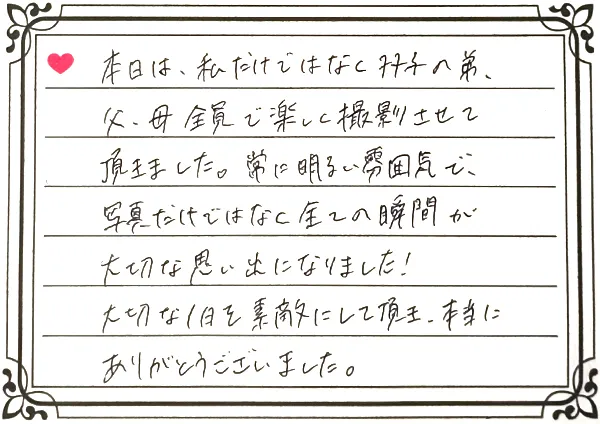 本日は、私だけではなく双子の弟、
父、母全員で楽しく撮影させて
頂きました。常に明るい雰囲気で、
写真だけではなく全ての瞬間が
大切な思い出になりました!
大切な1日を素敵にして頂き、本当に
ありがとうございました。